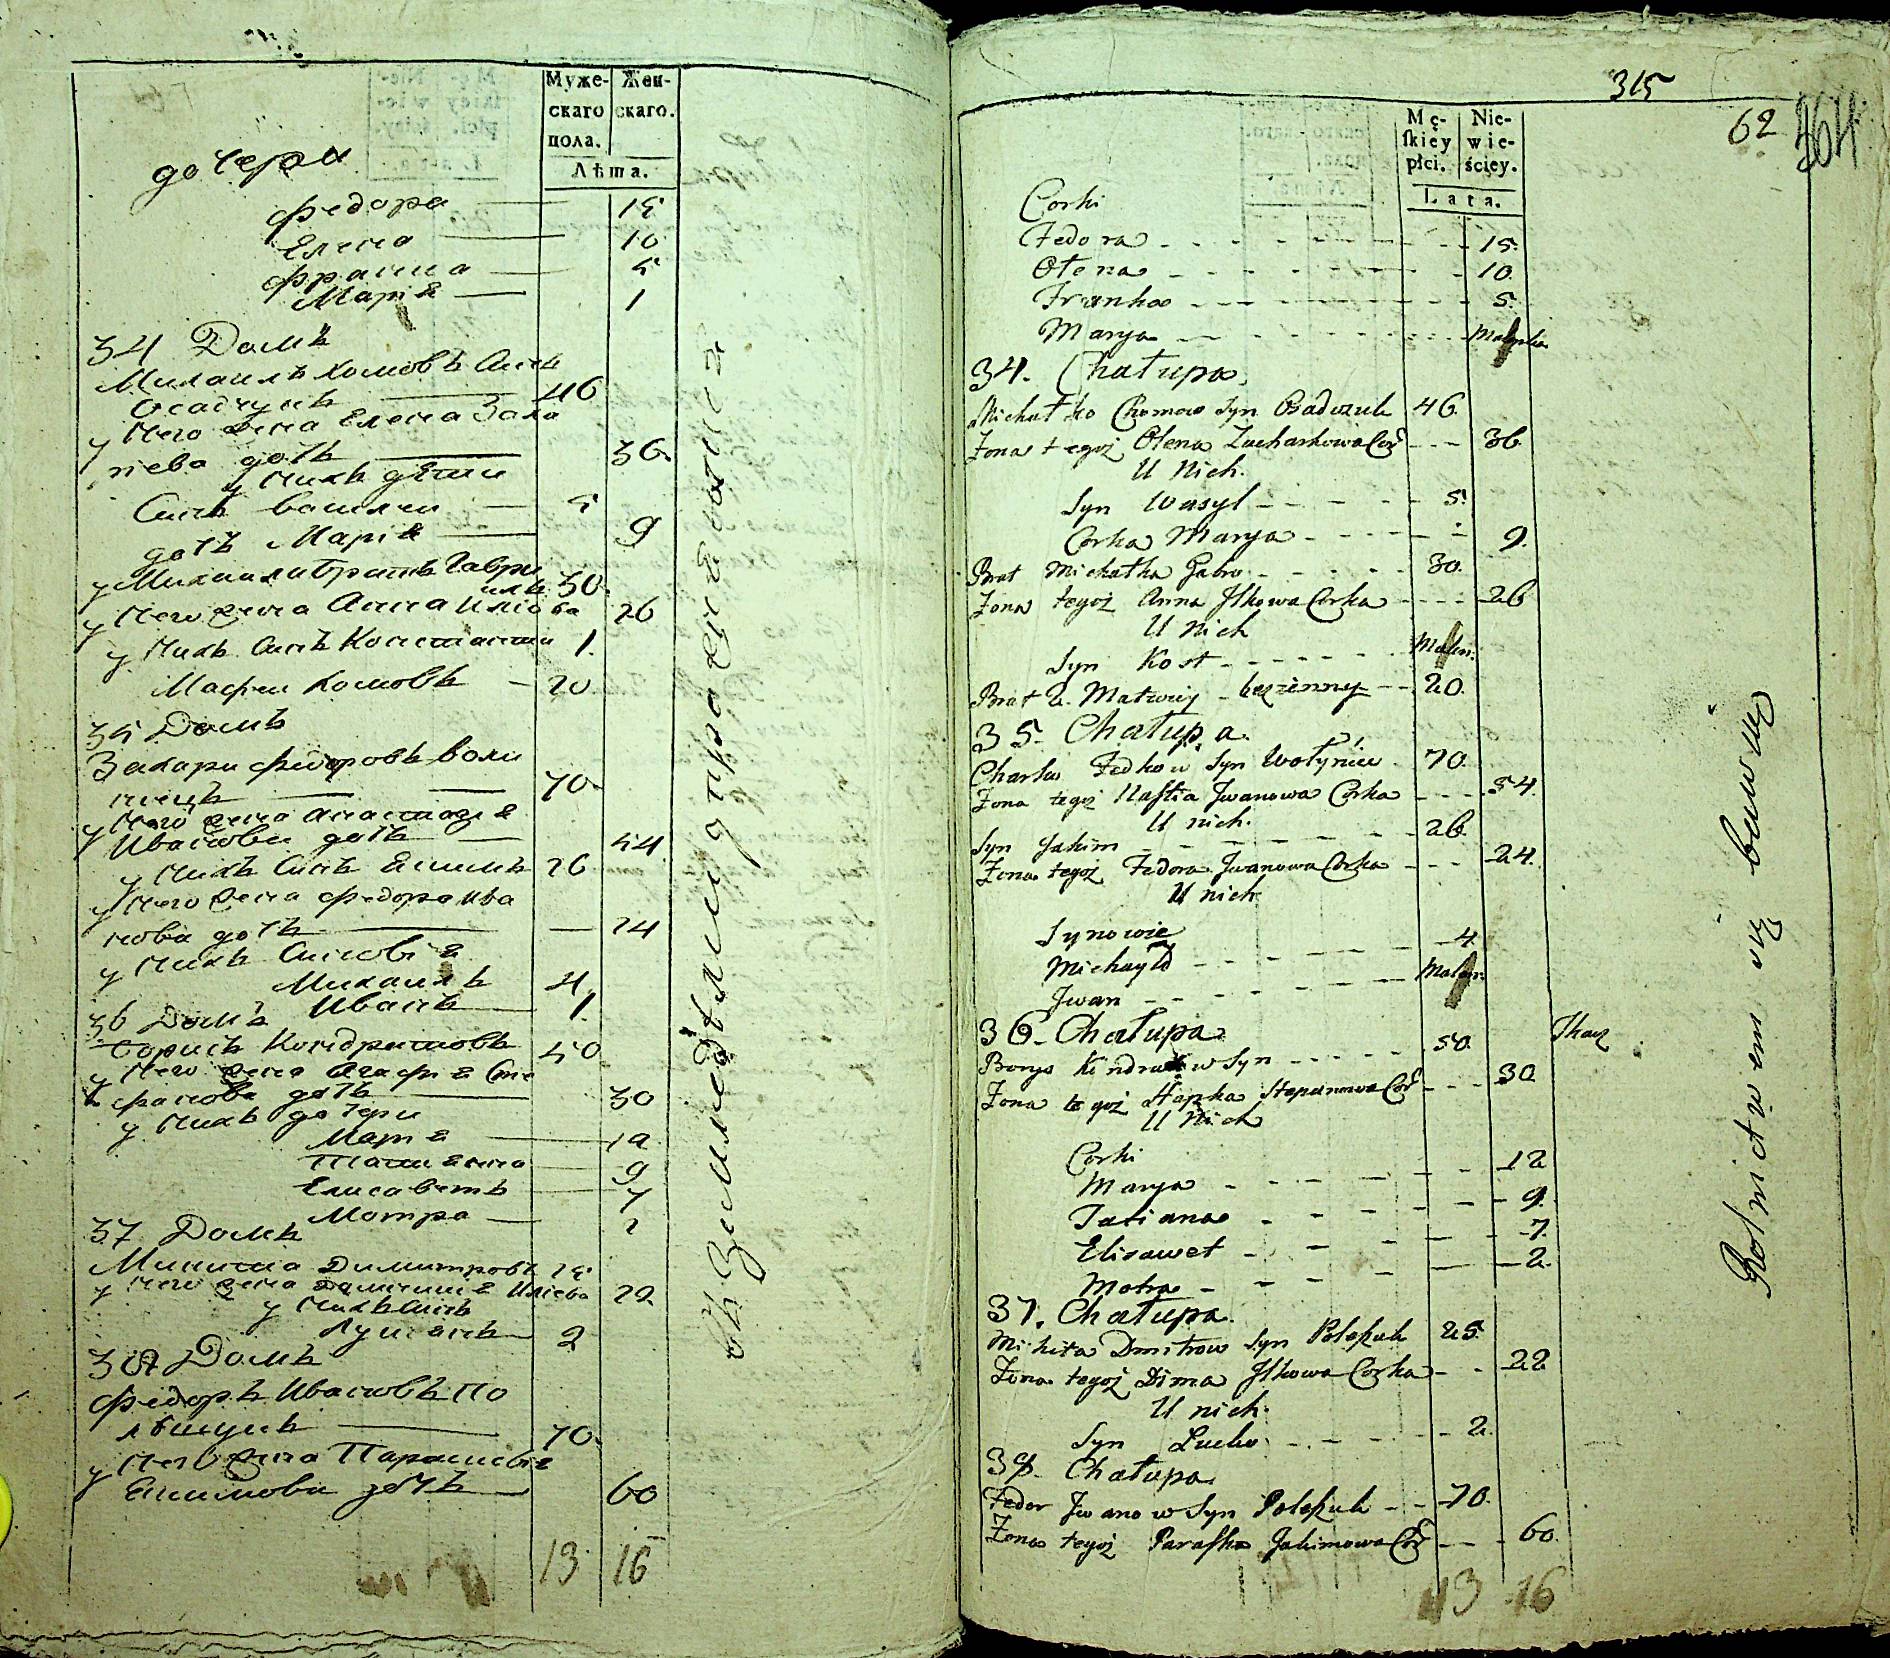 Муже-
скаго
пола.
Жен-
скаго.
Лѣта.
дочери
Федора 15
Елена 10
Франка 5
Марія 1
34 Домъ
Михаилъ Хомовъ Синъ
Осадчукъ 46
у Него жена Елена Заха
риева дочь 36.
у Нихъ дѣти
Синъ Василии 5
дочь Марія 9
у Михаила братъ Гаври
илъ 30.
у Него жена Анна Иліова 26
у Нихъ Синъ Константи 1.
Матфеи Хомовъ 20
35 Домъ
Захари Федоровъ воли
нецъ 70.
у Него жена Анастазія
Иванова дочь 54
у Нихъ Синъ Екимъ 26
у Него жена Федора Ива
нова дочь 24
у Нихъ Синовія
Михаилъ 4.
Иванъ 1.
36 Домъ
Борисъ Кондратовъ 50
у Него жена Агафія Сте
фанова дочь 30
у Нихъ дочери
Марія 12
Татіанна 9
Елисаветъ 7
Мотра 2
37 Домъ
Микита Димитровъ 25
у Него жена Илиева 22.
у Нихъ Синъ
Лукіанъ 2
38 Домъ
Федоръ Ивановъ По
лѣщукъ 70.
у Него жена Параскевія
Екимова дочь 60
13 16
въ Земледѣлии упражняются
315
62
364
Mę-
skiey
płci.
Nie-
wie-
ściey.
Lata.
Corki
Fedora 15.
Ołena 10.
Franka 5.
Marya Maleńka
34. Chałupa.
Michałko Chomow Syn Osadczuk 46.
Żona tegoż Ołena Zacharkowa Cor 36.
U Nich.
Syn Wasyl 5.
Corka Marya 9.
Brat Michałka Gabro 30.
Żona tegoż Anna Ilkowa Corka 26
U Nich
Syn Kost Maleń.
Brat 2. Matwiy bezżenny 20.
35. Chałupa.
Charko Fedkow Syn Wołyniec 70.
Żona tegoż Nastia Jwanowa Corka 54.
U nich.
Syn Jakim 26.
Żona tegoż Fedora Jwanowa Corka 24.
U nich
Synowie
Michayło 4.
Jwan Maleń.
36. Chałupa
Borys Kindratow Syn 50. Tkacz
Żona tegoż Hapka Stepanowa Cor 30
U Nich
Corki
Marya 12
Tatiana 9.
Elizawet 7.
Motra 2.
37. Chałupa.
Mikita Dmitrow Syn Poleszuk 25.
Żona tegoż Dima Ilkowa Corka 22
U nich.
Syn Lucko 2.
38. Chałupa
Fedor Jwanow Syn Poleszuk 70.
Żona tegoż Paraska Jakimowa Cor 60.
13 16
Rolnictwem się bawią